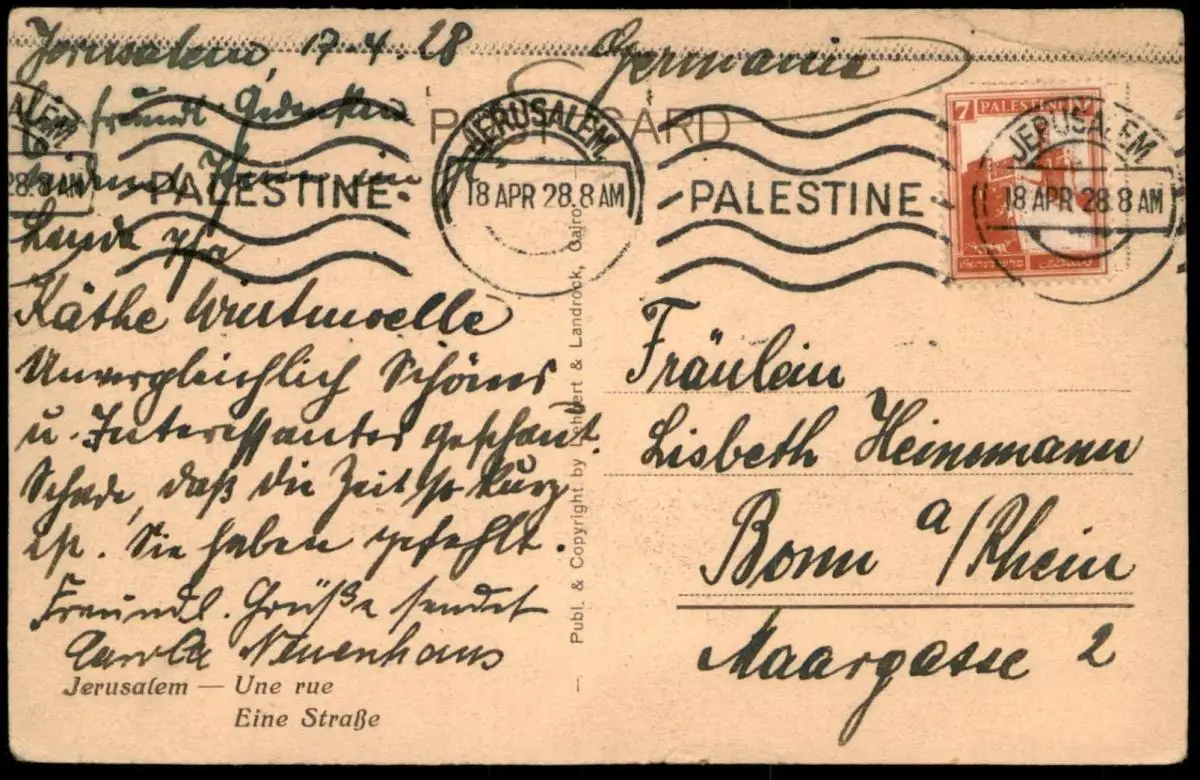 Jerusalem, 17.4.28
freundl. Gedenken
Ihnen im
Lande Ihre
Käthe
Unvergleichlich Schönes
u. Interessantes geschaut.
Schade, daß die Zeit so kurz
ist. Sie haben gefehlt.
Freundl. Grüße sendet
Carola Neuenhaus
Jerusalem — Une rue
Eine Straße
Germania
POST CARD
ALEM.
28.8 AM
PALESTINE
JERUSALEM.
18 APR 28.8 AM
PALESTINE
7 PALESTINE 7
JERUSALEM
18 APR 28.8 AM
Publ. & Copyright by Lehnert & Landrock, Cairo
Fräulein
Lisbeth Heinemann
Bonn a/Rhein
Maargasse 2